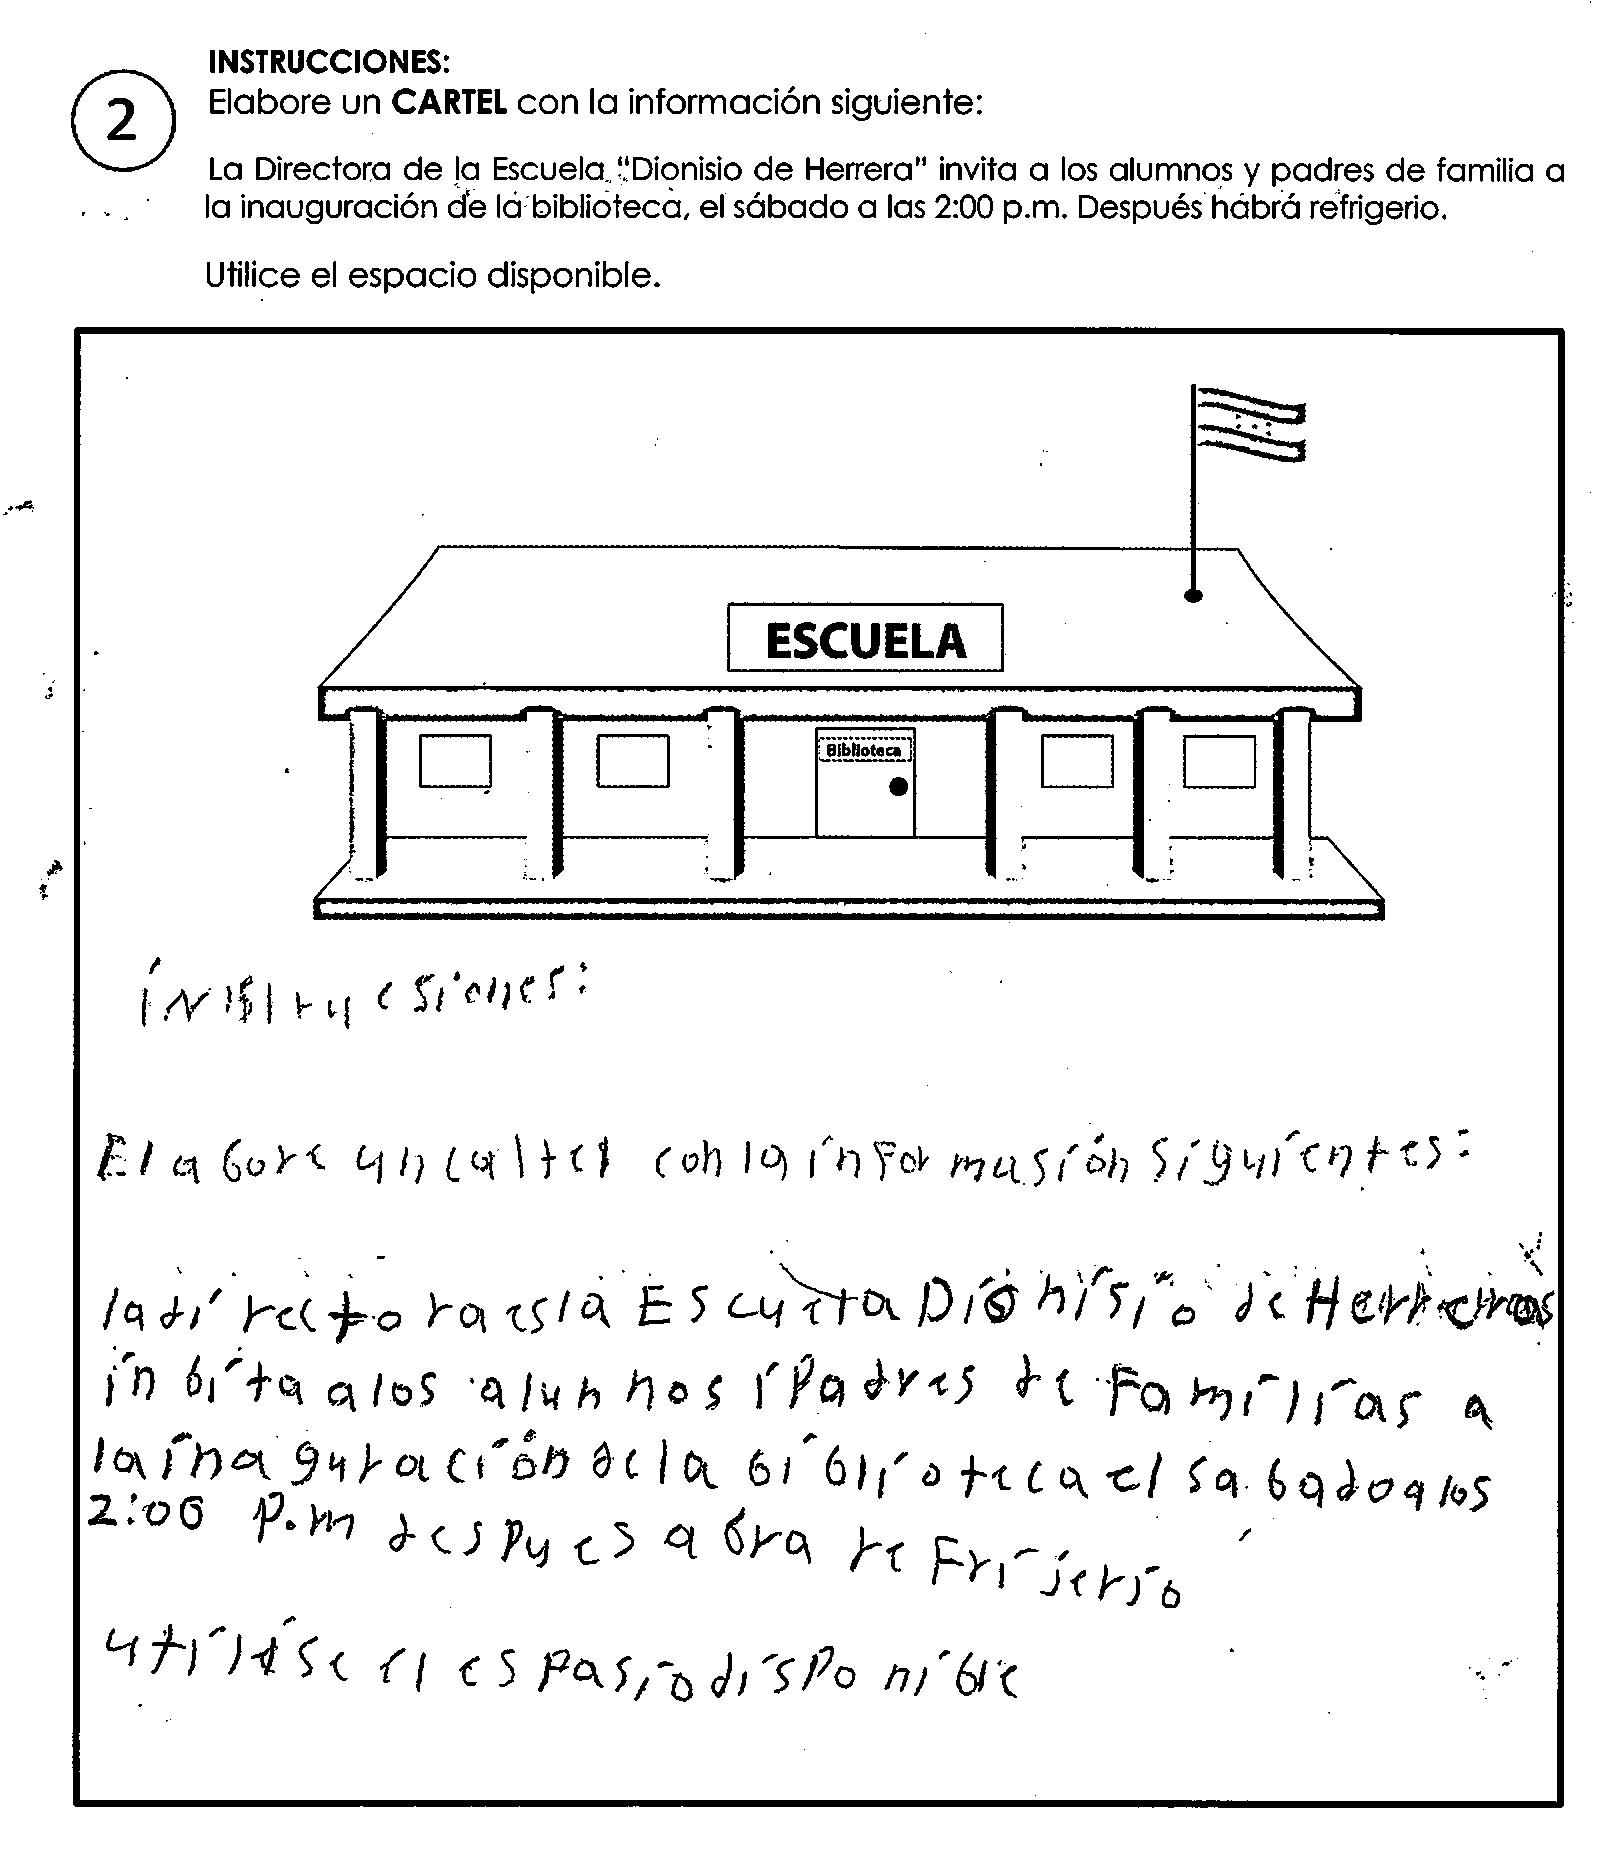 2
INSTRUCCIONES:
Elabore un CARTEL con la información siguiente:
La Directora de la Escuela "Dionisio de Herrera" invita a los alumnos y padres de familia a
la inauguración de la biblioteca, el sábado a las 2:00 p.m. Después habrá refrigerio.
Utilice el espacio disponible.
ESCUELA
Biblioteca
instrucsiones:
Elabore un caltel con la informasión siguientes:
la directora esla Escuela Dionisio de Herreras
inbita a los alunnos i Padres de Familias a
la inaguración de la biblioteca el sabado a los
2:00 P.m despues abra reFrijerio
utilise el espasio disPonible